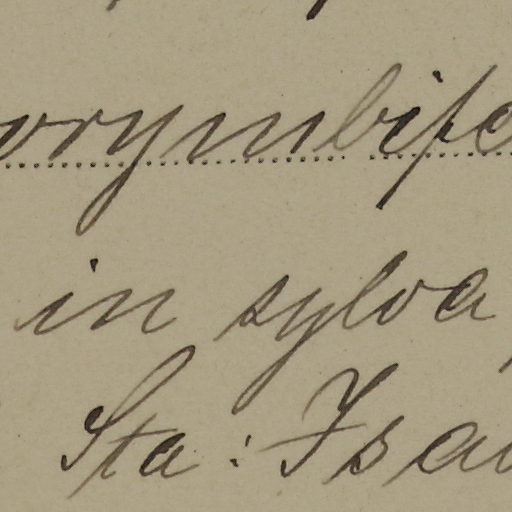 orymbife
in sylva
Sta: Isa